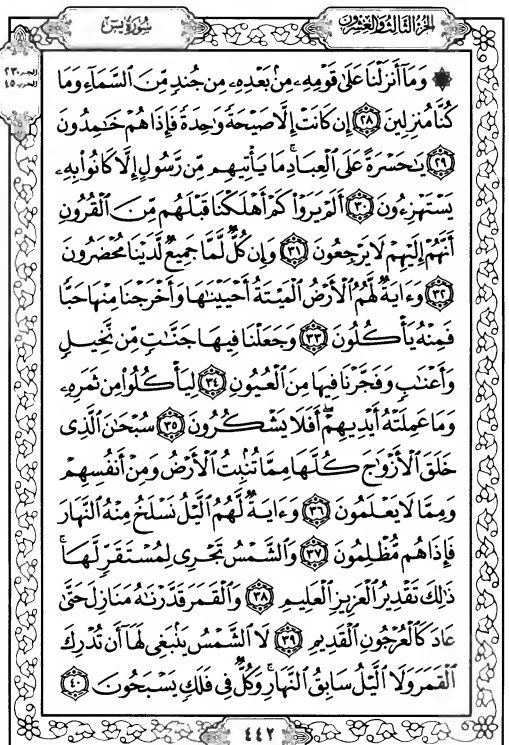 سُورَةُ يسٓ
الجزء الثالث والعشرون
الحزب ٤٥
وَمَآ أَنزَلْنَا عَلَىٰ قَوْمِهِۦ مِنۢ بَعْدِهِۦ مِن جُندٍ مِّنَ ٱلسَّمَآءِ وَمَا
كُنَّا مُنزِلِينَ ٢٨ إِن كَانَتْ إِلَّا صَيْحَةً وَٰحِدَةً فَإِذَا هُمْ خَٰمِدُونَ
٢٩ يَٰحَسْرَةً عَلَى ٱلْعِبَادِ ۚ مَا يَأْتِيهِم مِّن رَّسُولٍ إِلَّا كَانُوا۟ بِهِۦ
يَسْتَهْزِءُونَ ٣٠ أَلَمْ يَرَوْا۟ كَمْ أَهْلَكْنَا قَبْلَهُم مِّنَ ٱلْقُرُونِ
أَنَّهُمْ إِلَيْهِمْ لَا يَرْجِعُونَ ٣١ وَإِن كُلٌّ لَّمَّا جَمِيعٌ لَّدَيْنَا مُحْضَرُونَ
٣٢ وَءَايَةٌ لَّهُمُ ٱلْأَرْضُ ٱلْمَيْتَةُ أَحْيَيْنَٰهَا وَأَخْرَجْنَا مِنْهَا حَبًّا
فَمِنْهُ يَأْكُلُونَ ٣٣ وَجَعَلْنَا فِيهَا جَنَّٰتٍ مِّن نَّخِيلٍ
وَأَعْنَٰبٍ وَفَجَّرْنَا فِيهَا مِنَ ٱلْعُيُونِ ٣٤ لِيَأْكُلُوا۟ مِن ثَمَرِهِۦ
وَمَا عَمِلَتْهُ أَيْدِيهِمْ ۖ أَفَلَا يَشْكُرُونَ ٣٥ سُبْحَٰنَ ٱلَّذِى
خَلَقَ ٱلْأَزْوَٰجَ كُلَّهَا مِمَّا تُنۢبِتُ ٱلْأَرْضُ وَمِنْ أَنفُسِهِمْ
وَمِمَّا لَا يَعْلَمُونَ ٣٦ وَءَايَةٌ لَّهُمُ ٱلَّيْلُ نَسْلَخُ مِنْهُ ٱلنَّهَارَ
فَإِذَا هُم مُّظْلِمُونَ ٣٧ وَٱلشَّمْسُ تَجْرِى لِمُسْتَقَرٍّ لَّهَا ۚ
ذَٰلِكَ تَقْدِيرُ ٱلْعَزِيزِ ٱلْعَلِيمِ ٣٨ وَٱلْقَمَرَ قَدَّرْنَٰهُ مَنَازِلَ حَتَّىٰ
عَادَ كَٱلْعُرْجُونِ ٱلْقَدِيمِ ٣٩ لَا ٱلشَّمْسُ يَنۢبَغِى لَهَآ أَن تُدْرِكَ
ٱلْقَمَرَ وَلَا ٱلَّيْلُ سَابِقُ ٱلنَّهَارِ ۚ وَكُلٌّ فِى فَلَكٍ يَسْبَحُونَ ٤٠
٤٤٢